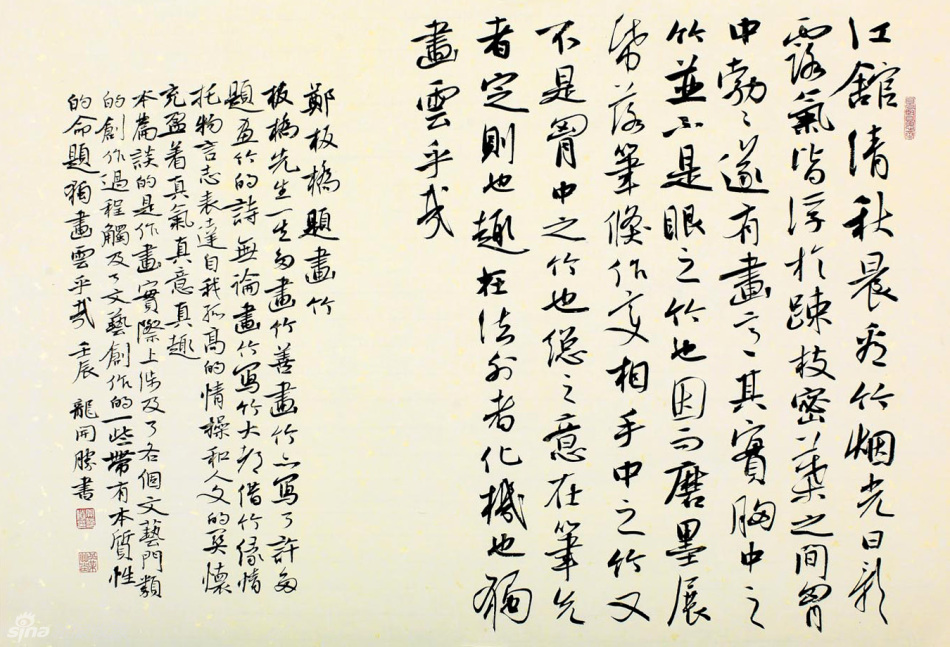 江館清秋晨看竹烟光日影
露氣皆浮於疎枝密葉之間胷
中勃〻遂有畫意其實胸中之
竹並不是眼之竹也因而磨墨展
紙落筆倏作变相手中之竹又
不是胷中之竹也總之意在筆先
者定則也趣在法外者化機也獨
畫雲乎哉
鄭板橋題畫竹
板橋先生一生多畫竹善畫竹亦寫了許多
題画竹的詩無論畫竹寫竹大都借竹緣情
托物言志表達自我孤高的情操和人文的襟懷
充盈着真氣真意真趣
本篇談的是作畫實際上涉及了各個文藝門類
的創作過程觸及了文藝創作的一些帶有本質性
的命題獨畫雲乎哉 壬辰 龍開勝書
sina